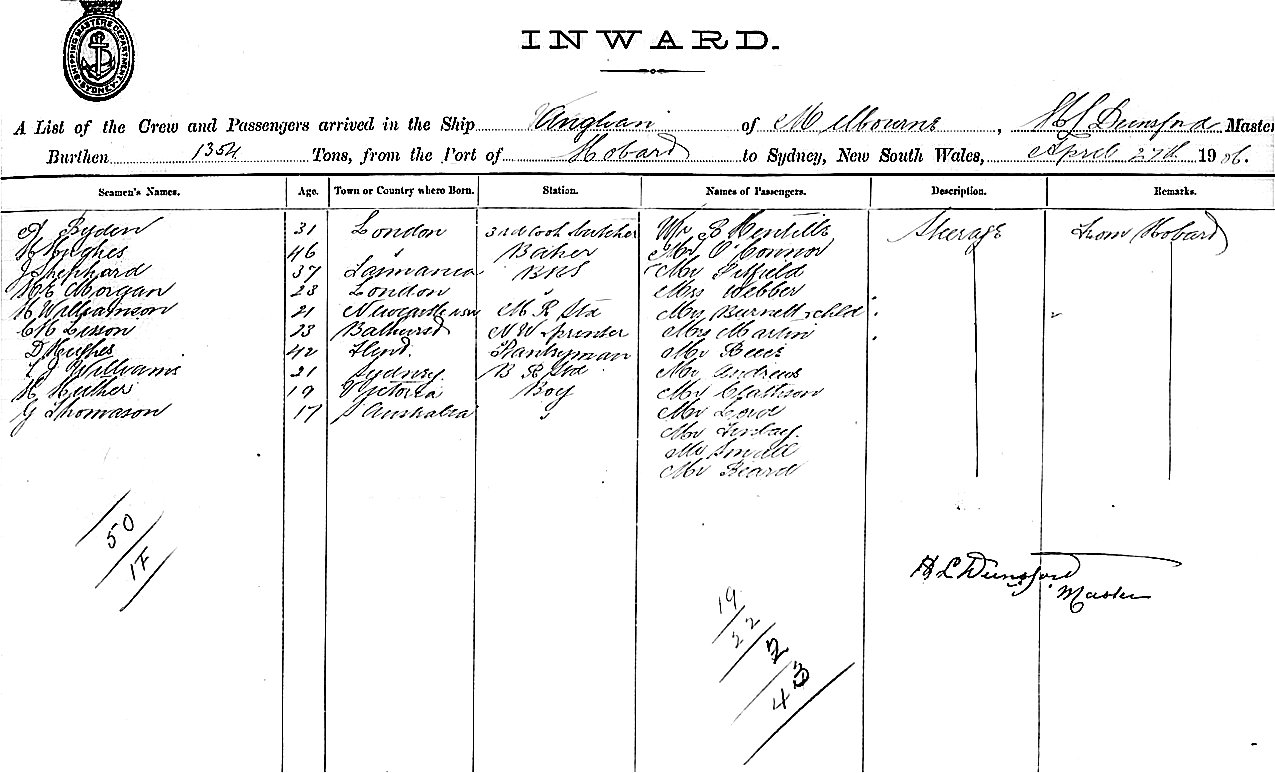 SHIPPING MASTER'S DEPARTMENT SYDNEY
INWARD.
A List of the Crew and Passengers arrived in the Ship of Melbourne, H L Dunsford Master
Burthen 1354 Tons, from the Port of Hobard to Sydney, New South Wales, April 27th 1906.
Seamen's Names. Age. Town or Country where Born. Station. Names of Passengers. Description. Remarks.
31 London 3rd Cook butcher Mr Steerage From Hobard
H Hughes 46 " Baker Mr O'Connor
J Shephard 37 Tasmania Mr Fitfield
Morgan 23 London " Mrs Webber
H Williamson 21 Newcastle Mrs Burnett & chld "
Lisson 23 Bathurst Mrs Martin
D Hughes 42 Pantryman Mr
Williams 21 Sydney Mr Andrews
H 19 Victoria Boy Mr
G Thomason 17 S Australia " Mr Lord
Mr Lindsay
Mr Small
Mr Beard
50
17
H L Dunsford
Master
19
22
2
43